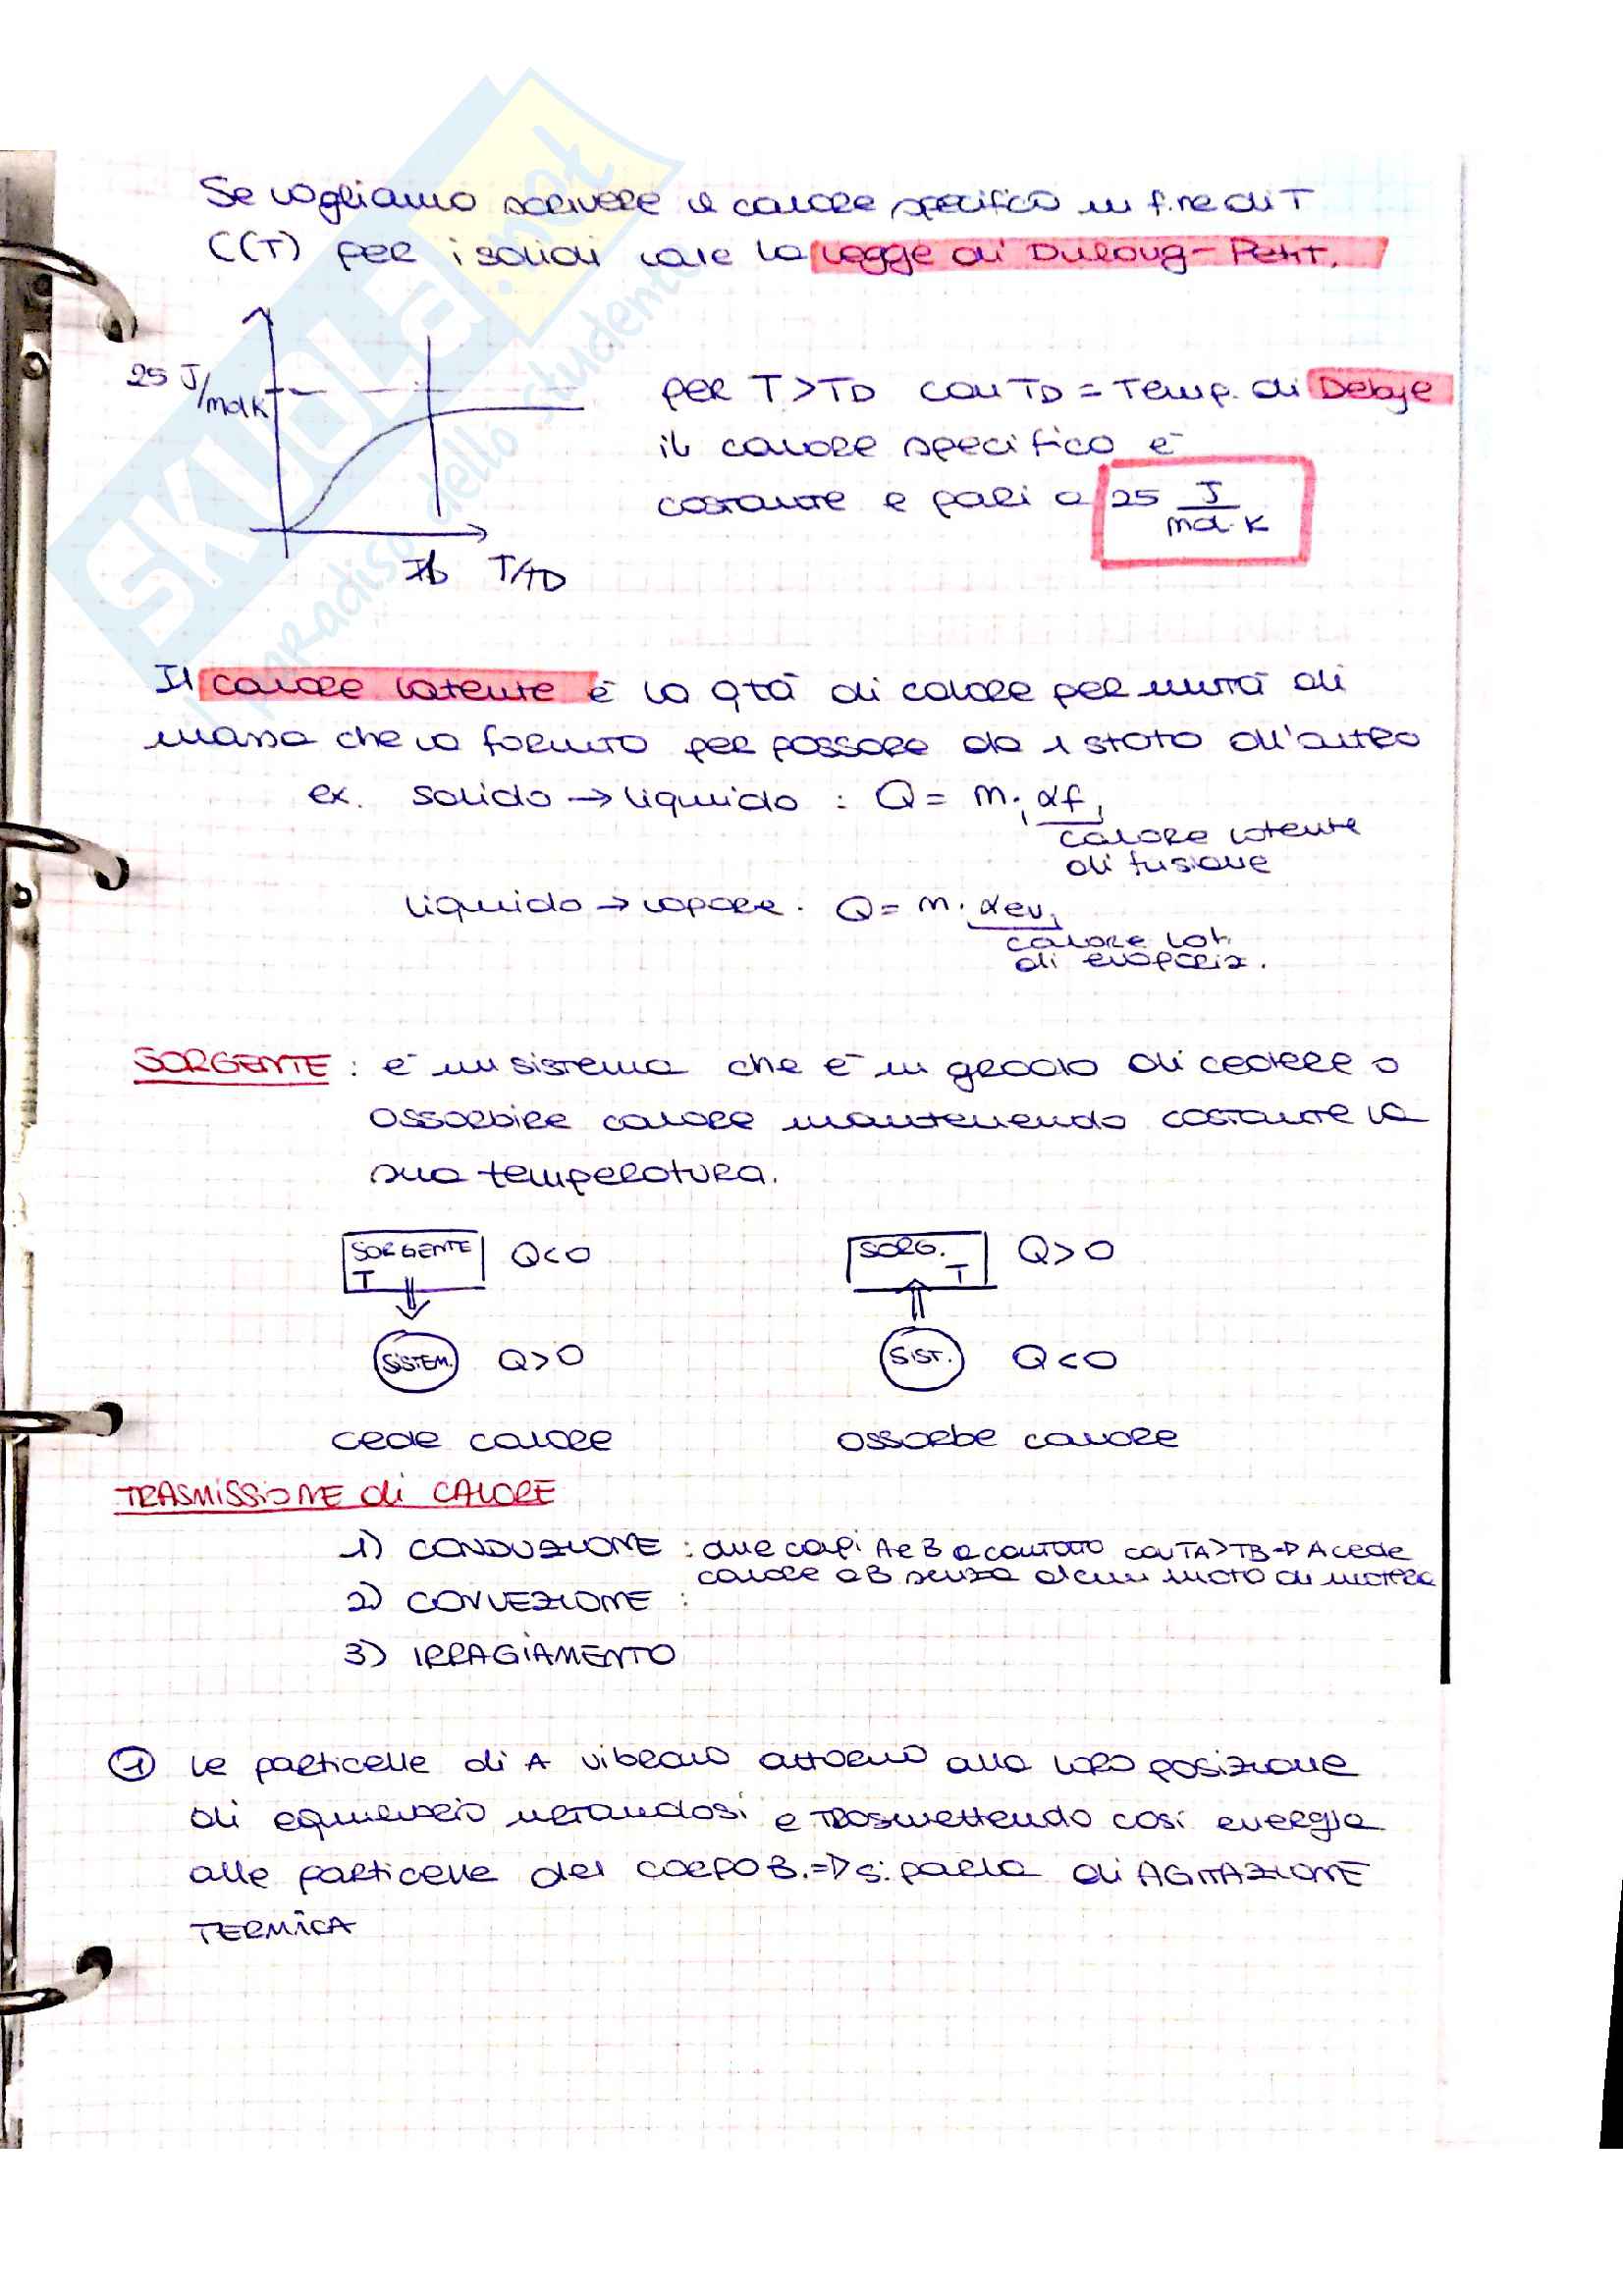 Se vogliamo scrivere il calore specifico in f.ne di T
C(T) per i solidi vale la legge di Duloug-Petit.
25 J/mol K
TD T/TD
per T>TD con TD = Temp. di Debye
il calore specifico è
costante e pari a 25 J/mol·K
Il calore latente è la qtà di calore per unità di
massa che va fornito per passare da 1 stato all'altro
ex. solido → liquido : Q = m · λf
calore latente
di fusione
liquido → vapore. Q = m · λev
calore lat.
di evaporiz.
SORGENTE : è un sistema che è in grado di cedere o
assorbire calore mantenendo costante la
sua temperatura.
SORGENTE T Q<0
SORG. T Q>0
SISTEM. Q>0
SIST. Q<0
cede calore
assorbe calore
TRASMISSIONE di CALORE
1) CONDUZIONE : due corpi A e B a contatto con TA>TB => A cede
calore a B senza alcun moto di materia
2) CONVEZIONE :
3) IRRAGIAMENTO
1 le particelle di A vibrano attorno alla loro posizione
di equilibrio urtandosi e trasmettendo così energia
alle particelle del corpo B. => si parla di AGITAZIONE
TERMICA
SKUOLA.net
il paradiso dello studente